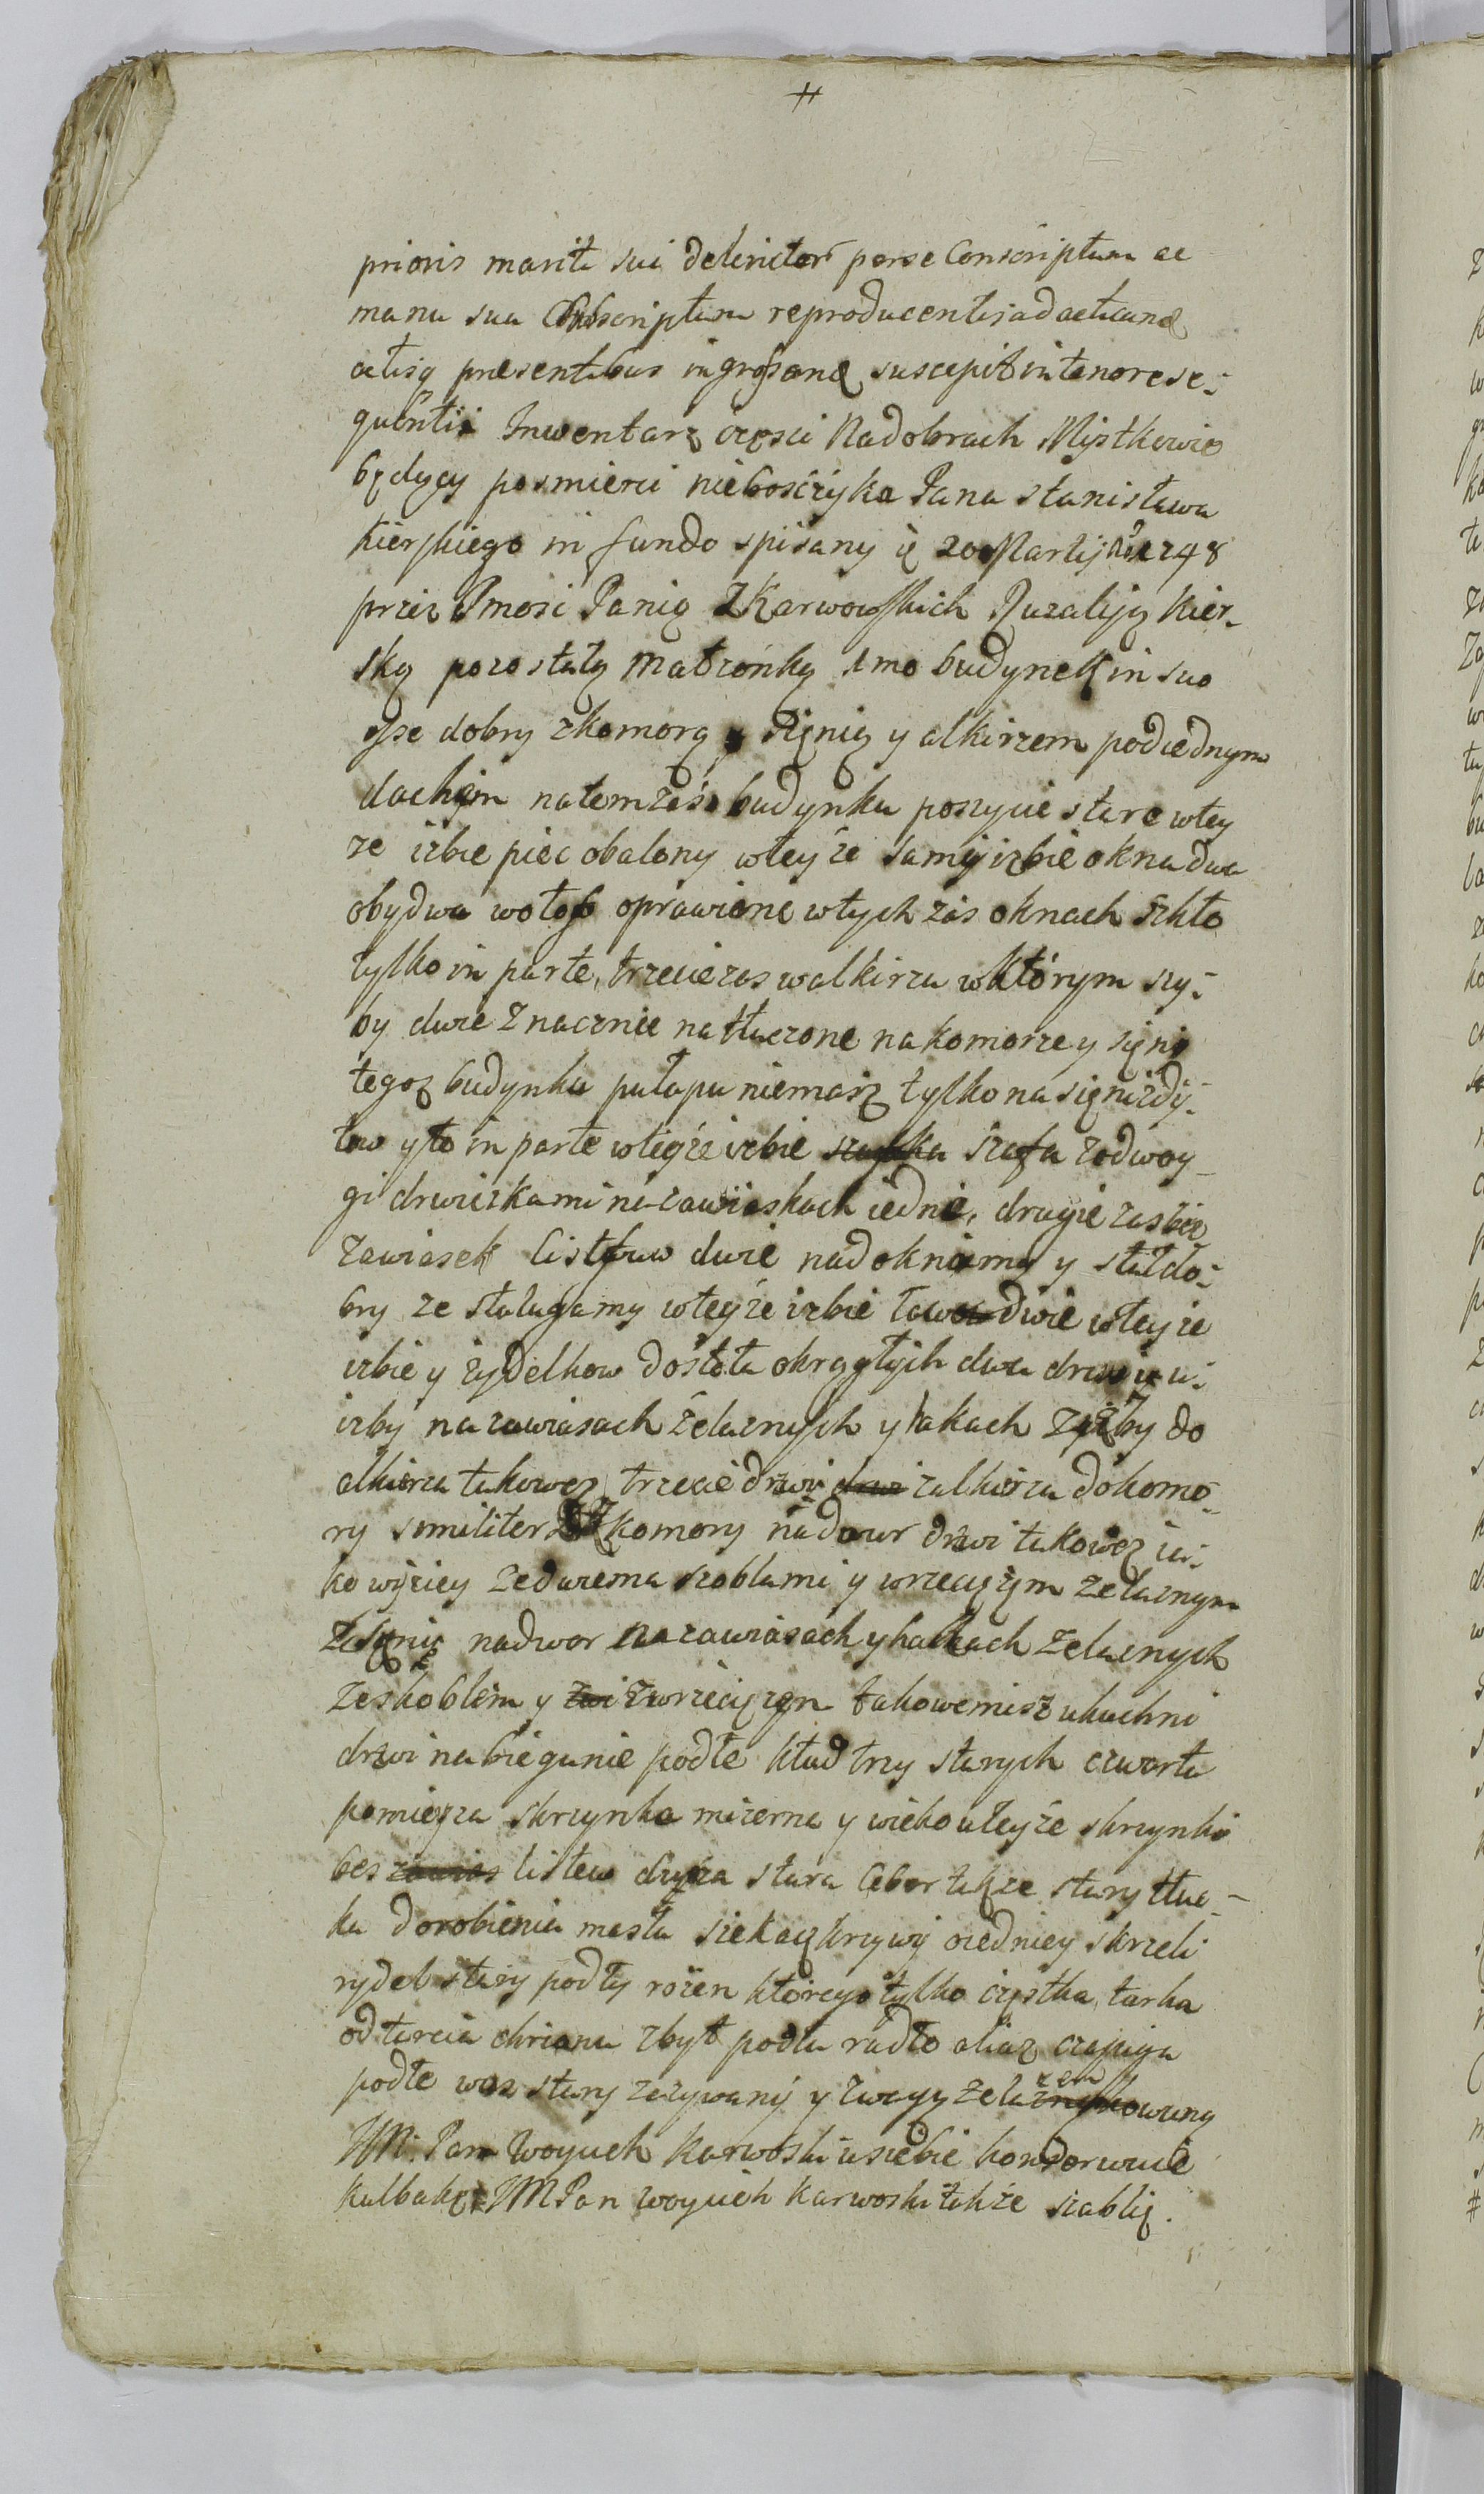 #
prioris mariti sui delicitor perse Conscriptum ac
manu sua Subscriptum reproducentis ad acticand
actisq presentibus ingrossand suscepit in tenore se-
quenti Inwentarz części Nadobrach Mystkowie
będący posmierci nieboszczyka Pana Stanisława
Kierskiego in fundo spisany ię 20 Martij 1748
przez Jmosc Panią Z Karwowskich Rozaliją Kier-
ską pozostałą małzonkę 1mo budynek in suo
esse dobry zkomorą y Sięnią y alkirzem podiednym
dachem natemześ budynku poszycie stare wtey
ze izbie piec obalony wteyże samey izbie okna dwa
obydwa wołob oprawione wtych zas oknach szkło
tylko in parte, trzecie zas walkirzu wktórym szy-
by dwie Znacznie natłuczone nakomorze y sięni
tegoz budynku pułapu niemasz tylko na sięni zdy-
low yto in parte wteyże izbie szafka szafa zodwoy-
gi drwiczkami na zawiaskach iedne, drugie zasbez
zawiasek listew dwie nadoknamy y stuł do-
bry ze stalugamy wteyże izbie ław dwie wteyże
izbie y zydelkow do stołu okrągłych dwa drzwi u
izby na zawiasach żelaznych y hakach Z izby do
alkierza takowez trzecie drzwi drwi zalkirza do komo-
ry similiter Z komory nadowr drzwi takowez ia-
ko wyżey zedwiema skoblami y wrzeciążem zelaznym
Zsięni nadwor na zawiasach y hakach zelaznych
zeskoblem y zwi zwrzeciązem takowemisz ukuchni
drzwi nabiegunie podłe kład trzy starych czwarta
pomieysza skrzynka mizerna y wieko uteyże skrzynki
bes zawias listew dzyża stara Ceber także stary tłuc-
ka dorobienia masła siekacz krzywy oiedniey skrzeli
rydel stary podły rożen którego tylko cząstka, tarka
odtarcia chrzanu zbyt podła radło aliaz czapiga
podłe woz stary zazywany y zwozy zelaznykowany
JM: Pan Woyciech Karwoski usiebie konserwuie
kulbakę JM Pan Woyciech Karwoski także szablę.